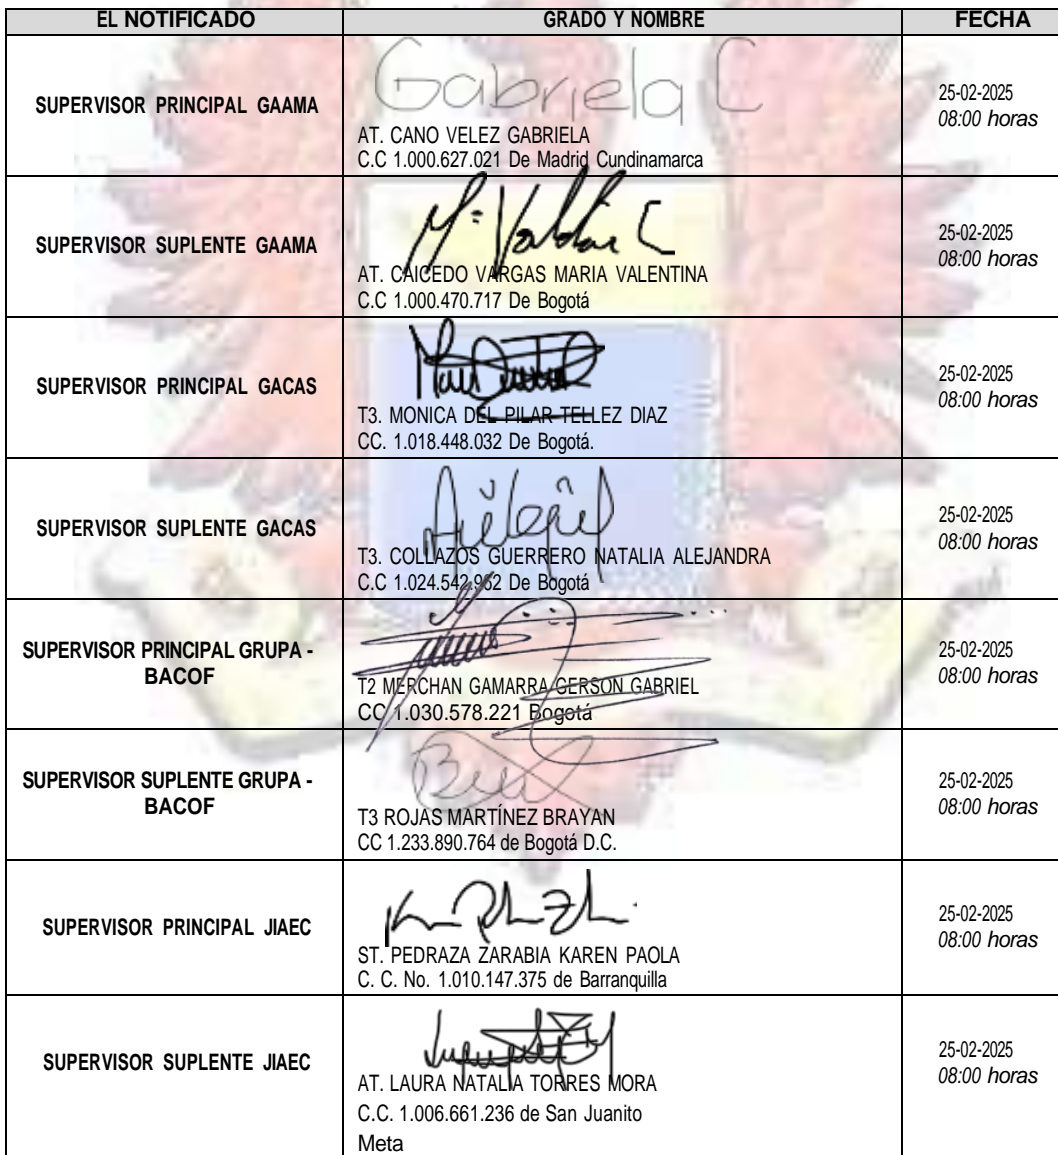 EL NOTIFICADO GRADO Y NOMBRE FECHA
Gabriela C
SUPERVISOR PRINCIPAL GAAMA
AT. CANO VELEZ GABRIELA
C.C 1.000.627.021 De Madrid Cundinamarca
25-02-2025
08:00 horas
SUPERVISOR SUPLENTE GAAMA
AT. CAICEDO VARGAS MARIA VALENTINA
C.C 1.000.470.717 De Bogotá
25-02-2025
08:00 horas
SUPERVISOR PRINCIPAL GACAS
T3. MONICA DEL PILAR TELLEZ DIAZ
CC. 1.018.448.032 De Bogotá.
25-02-2025
08:00 horas
SUPERVISOR SUPLENTE GACAS
T3. COLLAZOS GUERRERO NATALIA ALEJANDRA
C.C 1.024.542.962 De Bogotá
25-02-2025
08:00 horas
SUPERVISOR PRINCIPAL GRUPA -
BACOF
T2 MERCHAN GAMARRA GERSON GABRIEL
CC 1.030.578.221 Bogotá
25-02-2025
08:00 horas
SUPERVISOR SUPLENTE GRUPA -
BACOF
T3 ROJAS MARTÍNEZ BRAYAN
CC 1.233.890.764 de Bogotá D.C.
25-02-2025
08:00 horas
SUPERVISOR PRINCIPAL JIAEC
ST. PEDRAZA ZARABIA KAREN PAOLA
C. C. No. 1.010.147.375 de Barranquilla
25-02-2025
08:00 horas
SUPERVISOR SUPLENTE JIAEC
AT. LAURA NATALIA TORRES MORA
C.C. 1.006.661.236 de San Juanito
Meta
25-02-2025
08:00 horas